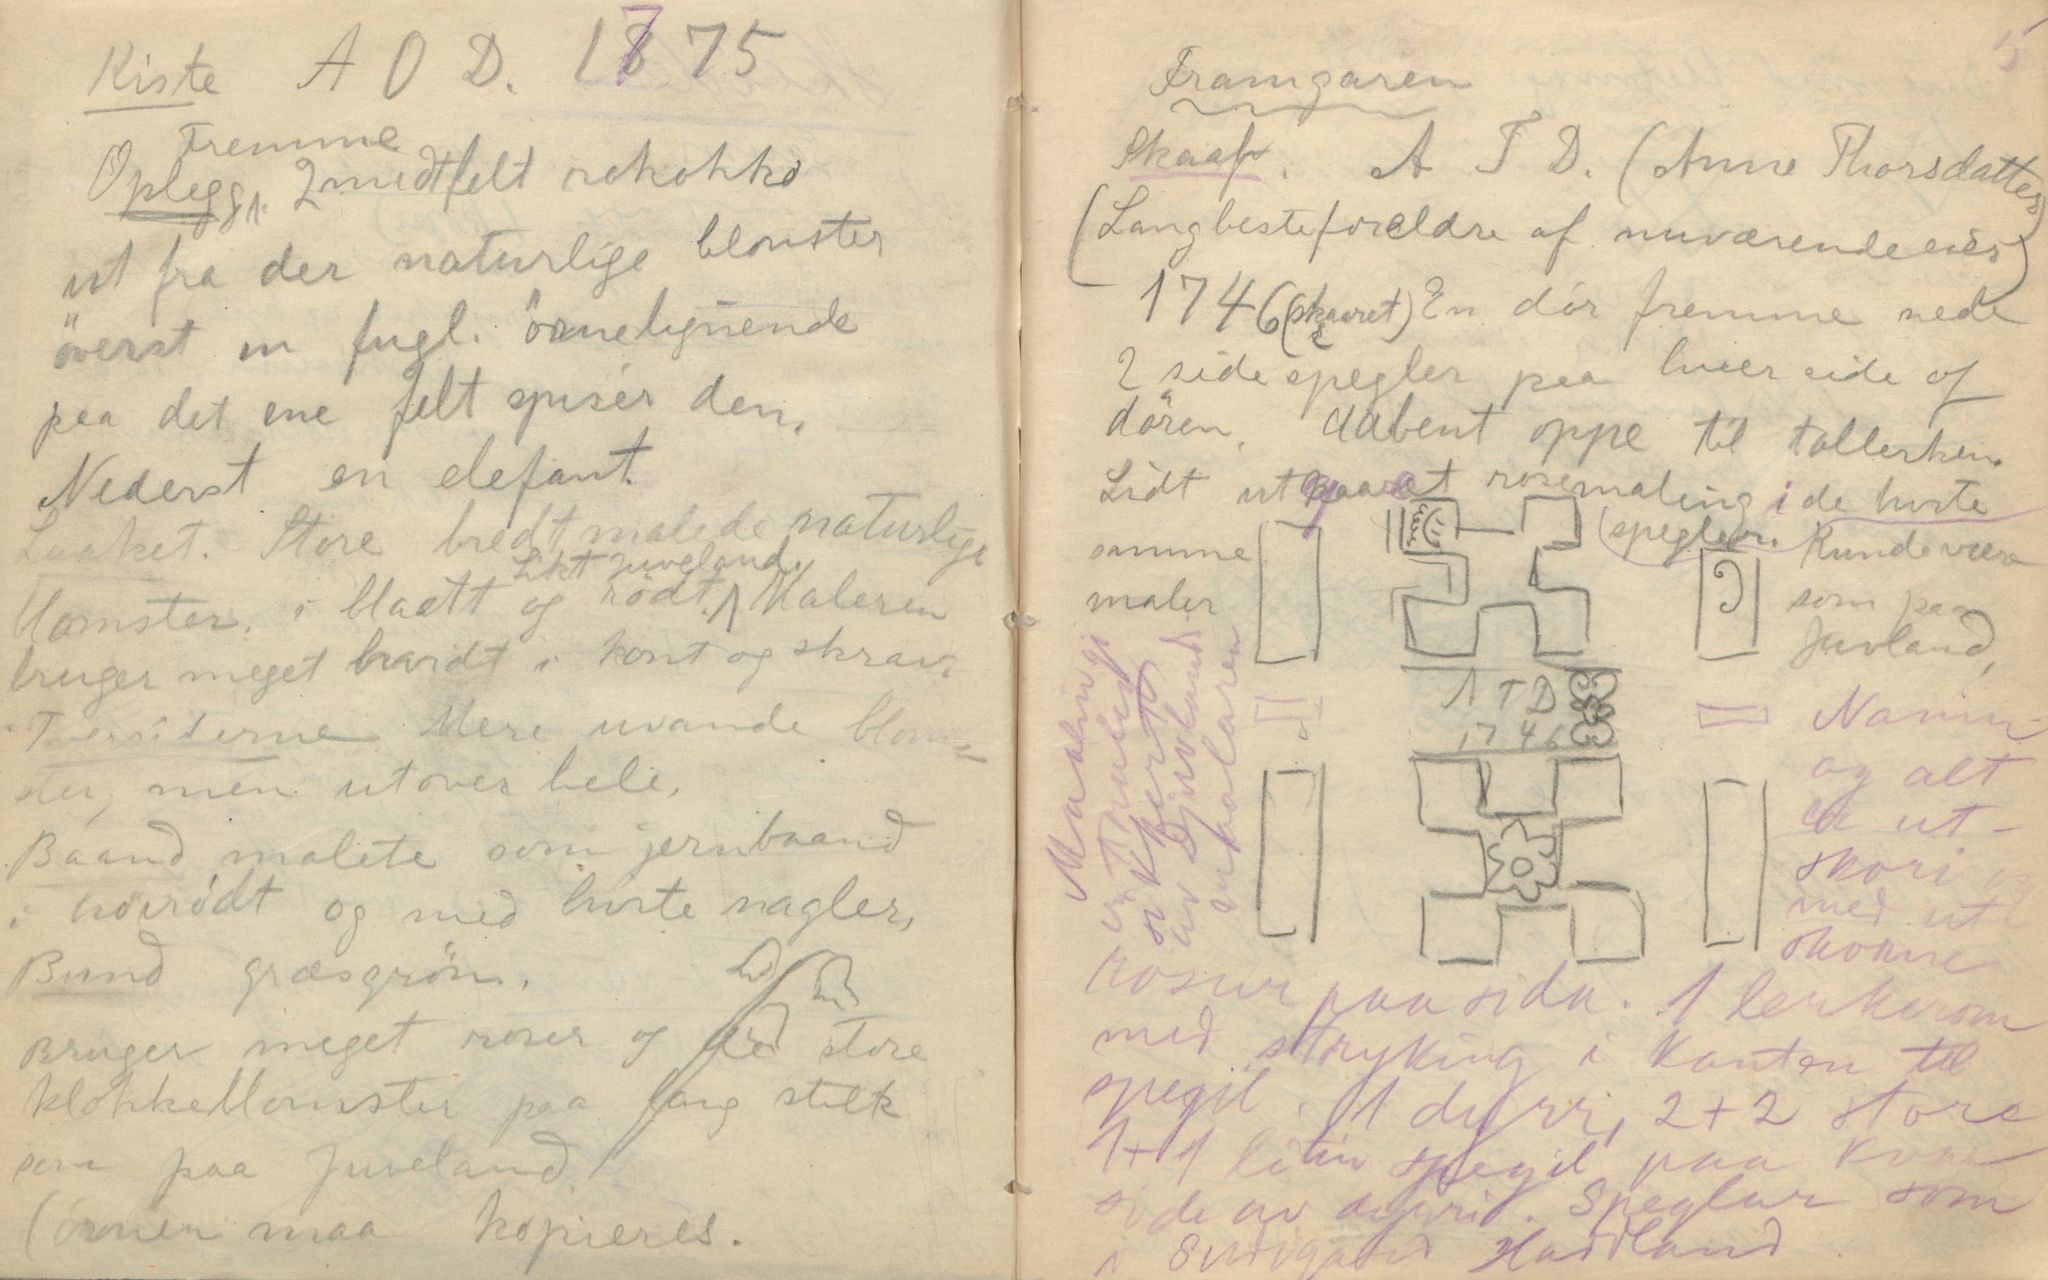 Kiste A O D. 1775
Fremme
Oplegg. 2 midtfelt rokokko
ut fra der naturlige blomster
överst en fugl. örnelignende
paa det ene felt spiser den.
Nederst en elefant.
Laaket. Store bredt malede naturlige
Likt Juveland.
blomster. i blaatt og rödt. Maleren
bruger meget hvidt i kont og skrav.
Tversiderne Mere uvande blom-
ster, men utover hele.
Baand malete som jernbaand
i höirödt og med hvite nagler.
Bund græsgrön.
Bruger meget roser og de store
klokkeblomster paa lang stilk
som paa Juveland.
(örnen maa kopieres.
5
Framgaren
Skaap. A T D. (Anne Thorsdatter)
(Langbesteforældre af nuværende eier)
1746 (skaaret) En dör fremme nede
2 side spegler paa hver side af
dören. aabent oppe til tallerken.
Lidt utskaaret rosemaling i de hvite
spegler. Kunde være
samme
maler
som paa
Juvland,
A T D
1746
Maaling
er
av Djuvlands
maalaren
Namn
og alt
er ut-
skori og
med ut
skorne
rosur paa sida. 1 lerkerom
med stryking i kanten til
spegil. 1 dyrr, 2+2 store
1+1 liten spegil paa kvar
side av dyrri. Speglar som
i Haddland